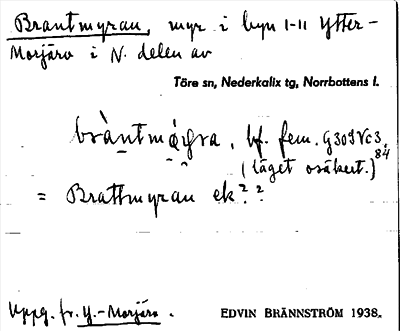 Brantmyran, myr i byn 1-11 Ytter-
Morjärv i N. delen av
Töre sn, Nederkalix tg, Norrbottens l.
bf. fem.
84
(läget osäkert.)
= Brattmyran ek??
Uppg. fr. Y.-Morjärv.
EDVIN BRÄNNSTRÖM 1938.